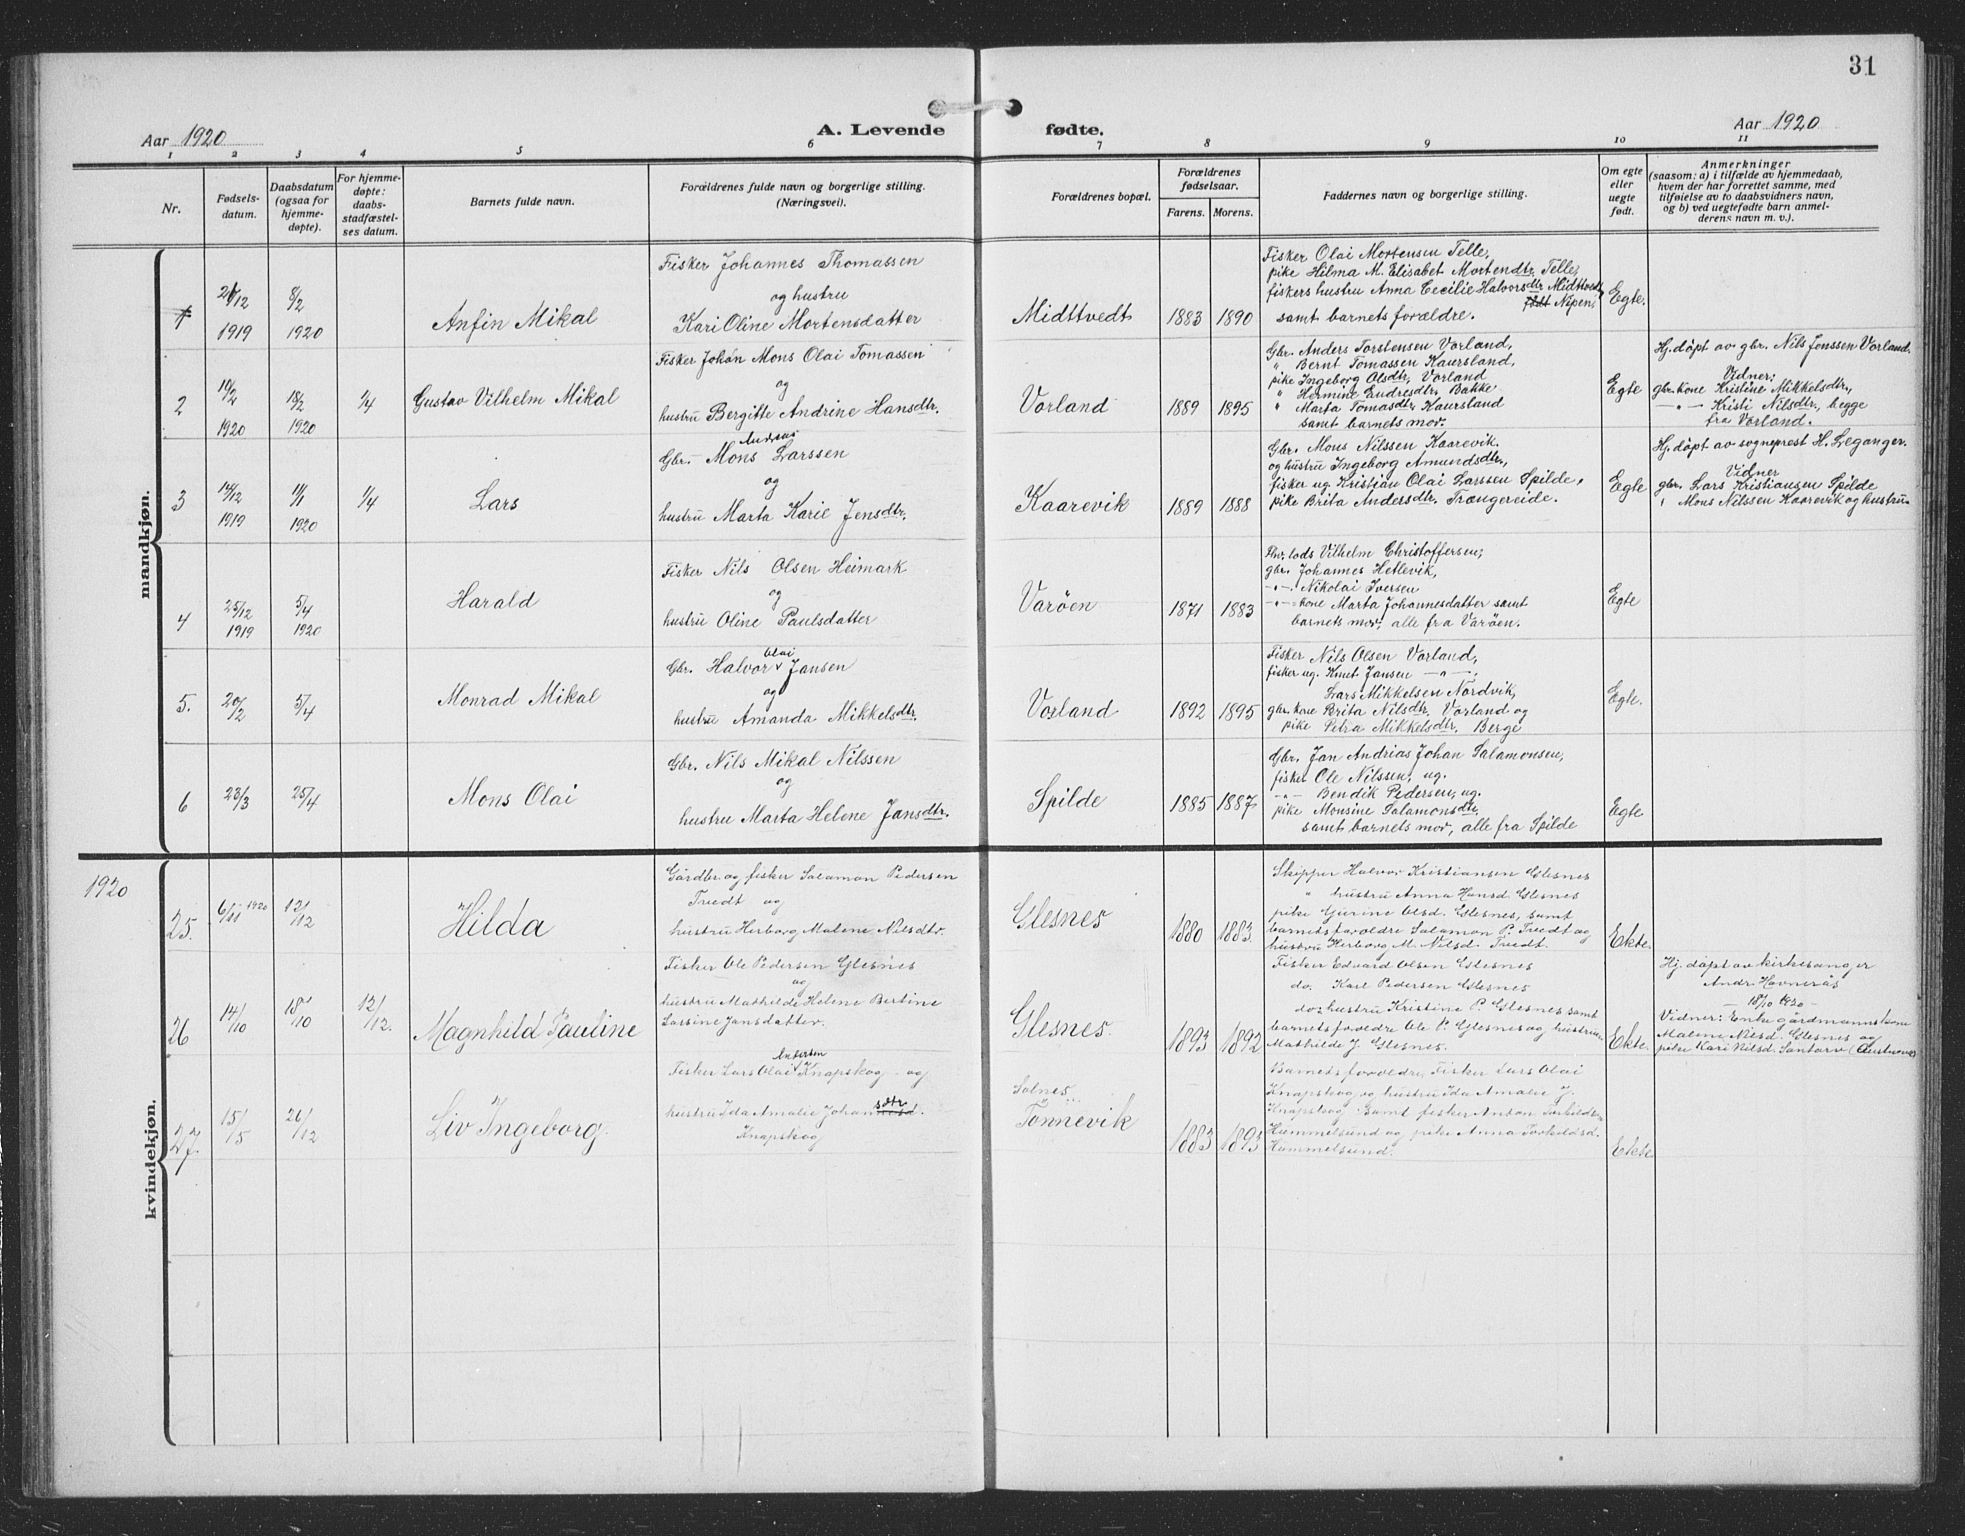 31
Aar 1920
A. Levende fødte.
Aar 1920
1 2 3 4 5 6 7 8 9 10 11
Nr.
Fødsels-
datum.
Daabsdatum
(ogsaa for
hjemme-
døpte).
For hjemme-
døpte:
daabs-
stadfæstel-
ses datum.
Barnets fulde navn.
Forældrenes fulde navn og borgerlige stilling.
(Næringsvei).
Forældrenes bopæl.
Forældrenes
fødselsaar.
Farens. Morens.
Faddernes navn og borgerlige stilling.
Om egte
eller
uegte
født.
Anmerkninger
(saasom: a) i tilfælde av hjemmedaab,
hvem der har forrettet samme, med
tilføielse av to daabsvidners navn,
og b) ved uegtefødte barn anmel-
derens navn m. v.).
mandkjøn.
1
21/12
1919
8/2
1920
Anfin Mikal
Fisker Johannes Thomassen
og hustru
Kari Oline Mortensdatter
Midttvedt
1883 1890
Fisker Olai Mortensen Telle,
pike Hilma M. Elisabet Mortendtr. Telle,
fiskers hustru Anna Cecilie Halvorsdtr. Midttvedt
født Nipen,
samt barnets forældre.
Egte.
2
10/2
1920
18/2
1920
1/4
Gustav Vilhelm Mikal
Fisker Johan Mons Olai Tomassen
og
hustru Bergitte Andrine Hansdtr.
Vorland
1889 1895
Gbr. Anders Torstensen Vorland,
" Bernt Tomassen Kaursland,
pike Ingeborg Olsdtr. Vorland
" Hermine Endresdtr. Bakke
" Marta Tomasdtr. Kaursland
samt barnets mor.
Egte
Hj. døpt av gbr. Nils Jonssen Vorland.
Vidner:
gbr. kone Kristine Mikkelsdtr.,
-"- Kristi Nilsdtr., begge
fra Vorland.
3
14/12
1919
11/1
1920
1/4
Lars
Andreas
Gbr. Mons Larssen
og
hustru Marta Karie Jensdtr.
Kaarevik
1889 1888
Gbr. Mons Nilssen Kaarevik.
og hustru Ingeborg Amundsdtr.,
fisker ug. Kristian Olai Larssen Spilde,
pike Brita Andersdtr. Trængereide.
Egte
Hj. døpt av sogneprest H. Leganger.
Vidner
gbr. Lars Kristiansen Spilde
" Mons Nilssen Kaarevik og hustru
4
25/12
1919
5/4
1920
Harald
Fisker Nils Olsen Heimark
og
hustru Oline Paulsdatter
Varøen
1871 1883
lods Vilhelm Christoffersen,
gbr. Johannes Hetlevik,
-"- Nikolai Iversen
-"- kone Marta Johannesdatter samt
barnets mor, alle fra Varøen.
Egte
5.
20/2
5/4
Monrad Mikal
Olai
Gbr. Halvor v Jansen
og
hustru Amanda Mikkelsdtr.
Vorland
1892 1895
Fisker Nils Olsen Vorland,
fisker ug. Knut Jansen -"-,
Lars Mikkelsen Nordvik,
gbr. kone Brita Nilsdtr. Vorland og
pike Petra Mikkelsdtr. Berge
Egte.
6
23/3
25/4
Mons Olai
Gbr. Nils Mikal Nilssen
og
hustru Marta Helene Jansdtr.
Spilde
1885 1887
Gbr. Jan Andrias Johan Salamonsen,
fisker Ole Nilssen, ug.
-"- Bendik Pedersen, ug.
pike Monsine Salamonsdtr.
samt barnets mor, alle fra Spilde
Egte
kvindekjøn.
1920
25.
6/11 1920
12/12
Hilda
Gårdbr. og fisker Salamon Pedersen
Tredt og
hustru Herborg Malene Nilsdtr.
Glesnes
1880 1883.
Skipper Halvor Kristiansen Glesnes
" hustru Anna Hansd. Glesnes
pike Gurine Olsd. Glesnes, samt
barnets foreldre Salamon P. Tredt og
hustru Herborg M. Nilsd. Tredt.
Ekte.
26
14/10
18/10
12/12.
Magnhild Pauline
Fisker Ole Pedersen Glesnes
og
hustru Mathilde Helene Bertine
Larsine Jansdatter.
Glesnes.
1893 1892
Fisker Edvard Olsen Glesnes
do. Karl Pedersen Glesnes
do. hustru Kristine P. Glesnes samt
barnets foreldre Ole P. Glesnes og hustru
Mathilde J. Glesnes.
Ekte.
Hj. døpt av kirkesanger
Andr. Hovnerås
- 18/10 1920 -
Vidner: Enke gårdmannskone
Malene Nilsd. Glesnes og
pike Kari Nilsd.
27.
15/5
26/12
Liv Ingeborg.
Andersen
Fisker Lars Olai Knapskog og
hustru Ida Amalie Johansdtr.
Knapskog
Solnes
Tønnevik
1883 1893
Barnets foreldre, Fisker Lars Olai
Knapskog og hustru Ida Amalie J.
Knapskog samt fisker Anton
Hummelsund og pike Anna Torkildsd.
Hummelsund.
Ekte